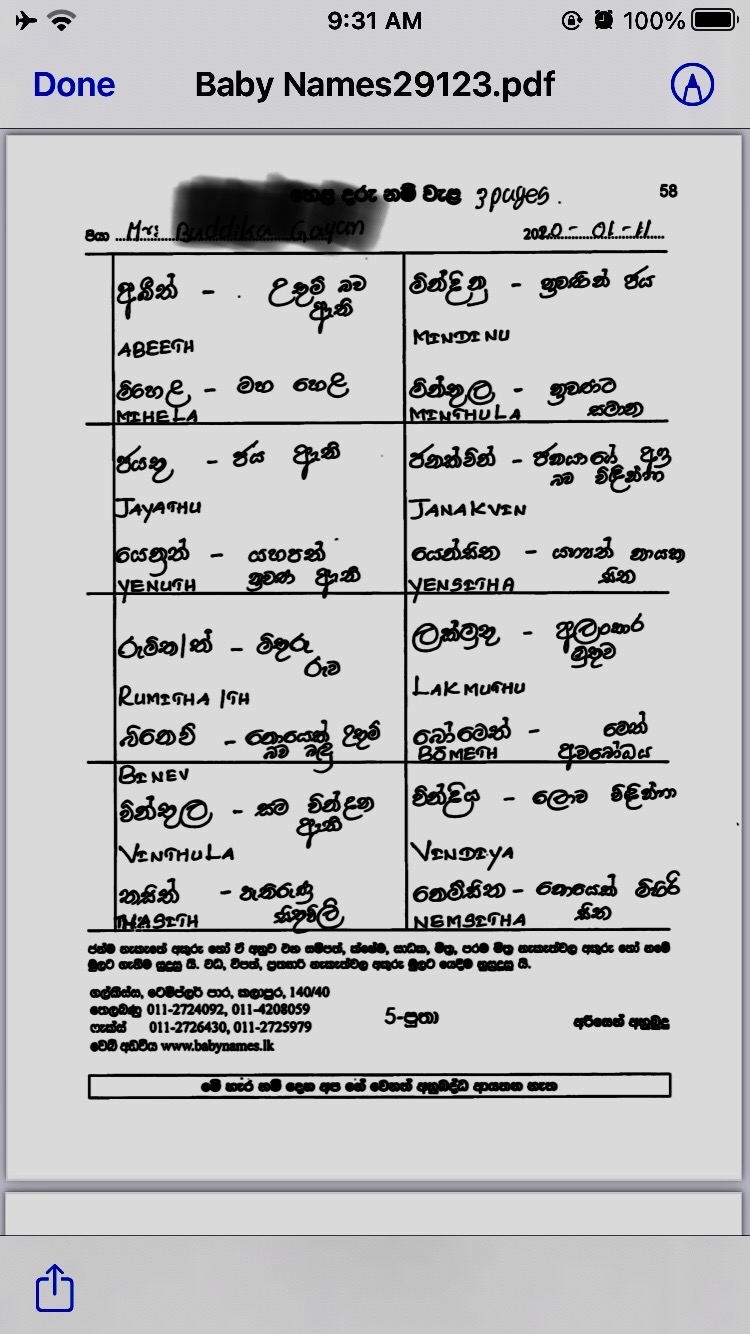 9:31 AM
100%
Done
Baby Names29123.pdf
හෙළ දරු නම් වැළ 3 pages.
58
පියා Mr: Buddika Gayan
2020-01-11
අබීත් - උතුම් බව
ඇති
ABEETH
මිහෙළි - මහ හෙළි
MIHELA
මින්දිනු - නුවණින් ජය
MINDINU
මින්තුල - නුවණට
සමාන
MINTHULA
ජයතු - ජය ඇති
JAYATHU
යෙනුත් - යහපත්
නුවණ ඇති
YENUTH
ජනක්වින් - ජනයාගේ
බව විඳින්නා
JANAKVIN
යෙන්සිත - යහපත් නායක
සිත
YENSITHA
රුමිත/ත් - මිතුරු
රුව
RUMITHA/TH
බිනෙව් - නොයෙක් උතුම්
බව බඳු
BINEV
ලක්මුතු - අලංකාර
මුතුව
LAKMUTHU
බෝමෙත් - මෙත්
අවබෝධය
BOMETH
වින්තුල - සම වින්දන
ඇති
VINTHULA
තසිත් - පැතිරුණු
සිතුවිලි
THASITH
වින්දිය - ලොව විඳින්නා
VINDIYA
නෙම්සිත - නොයෙක් මිහිරි
සිත
NEMSITHA
ජන්ම නැකැතේ අකුරු හෝ ඒ අනුව එන සම්පත්, ක්ෂේම, සාධක, මිත්‍ර, පරම මිත්‍ර නැකැත්වල අකුරු හෝ නමේ
මුලට ගැනීම සුදුසු යි. වධ, විපත්, ප්‍රත්‍යරි නැකැත්වල අකුරු මුලට යෙදීම නුසුදුසු යි.
ගල්කිස්ස, ටෙම්ප්ලර් පාර, කලාපුර, 140/40
තෙලබණු 011-2724092, 011-4208059
ෆැක්ස් 011-2726430, 011-2725979
වෙබ් අඩවිය www.babynames.lk
5-පුතා
අරිසෙන් අහුබුදු
මේ හැර නම් දෙන අප ගේ වෙනත් අනුබද්ධ ආයතන නැත